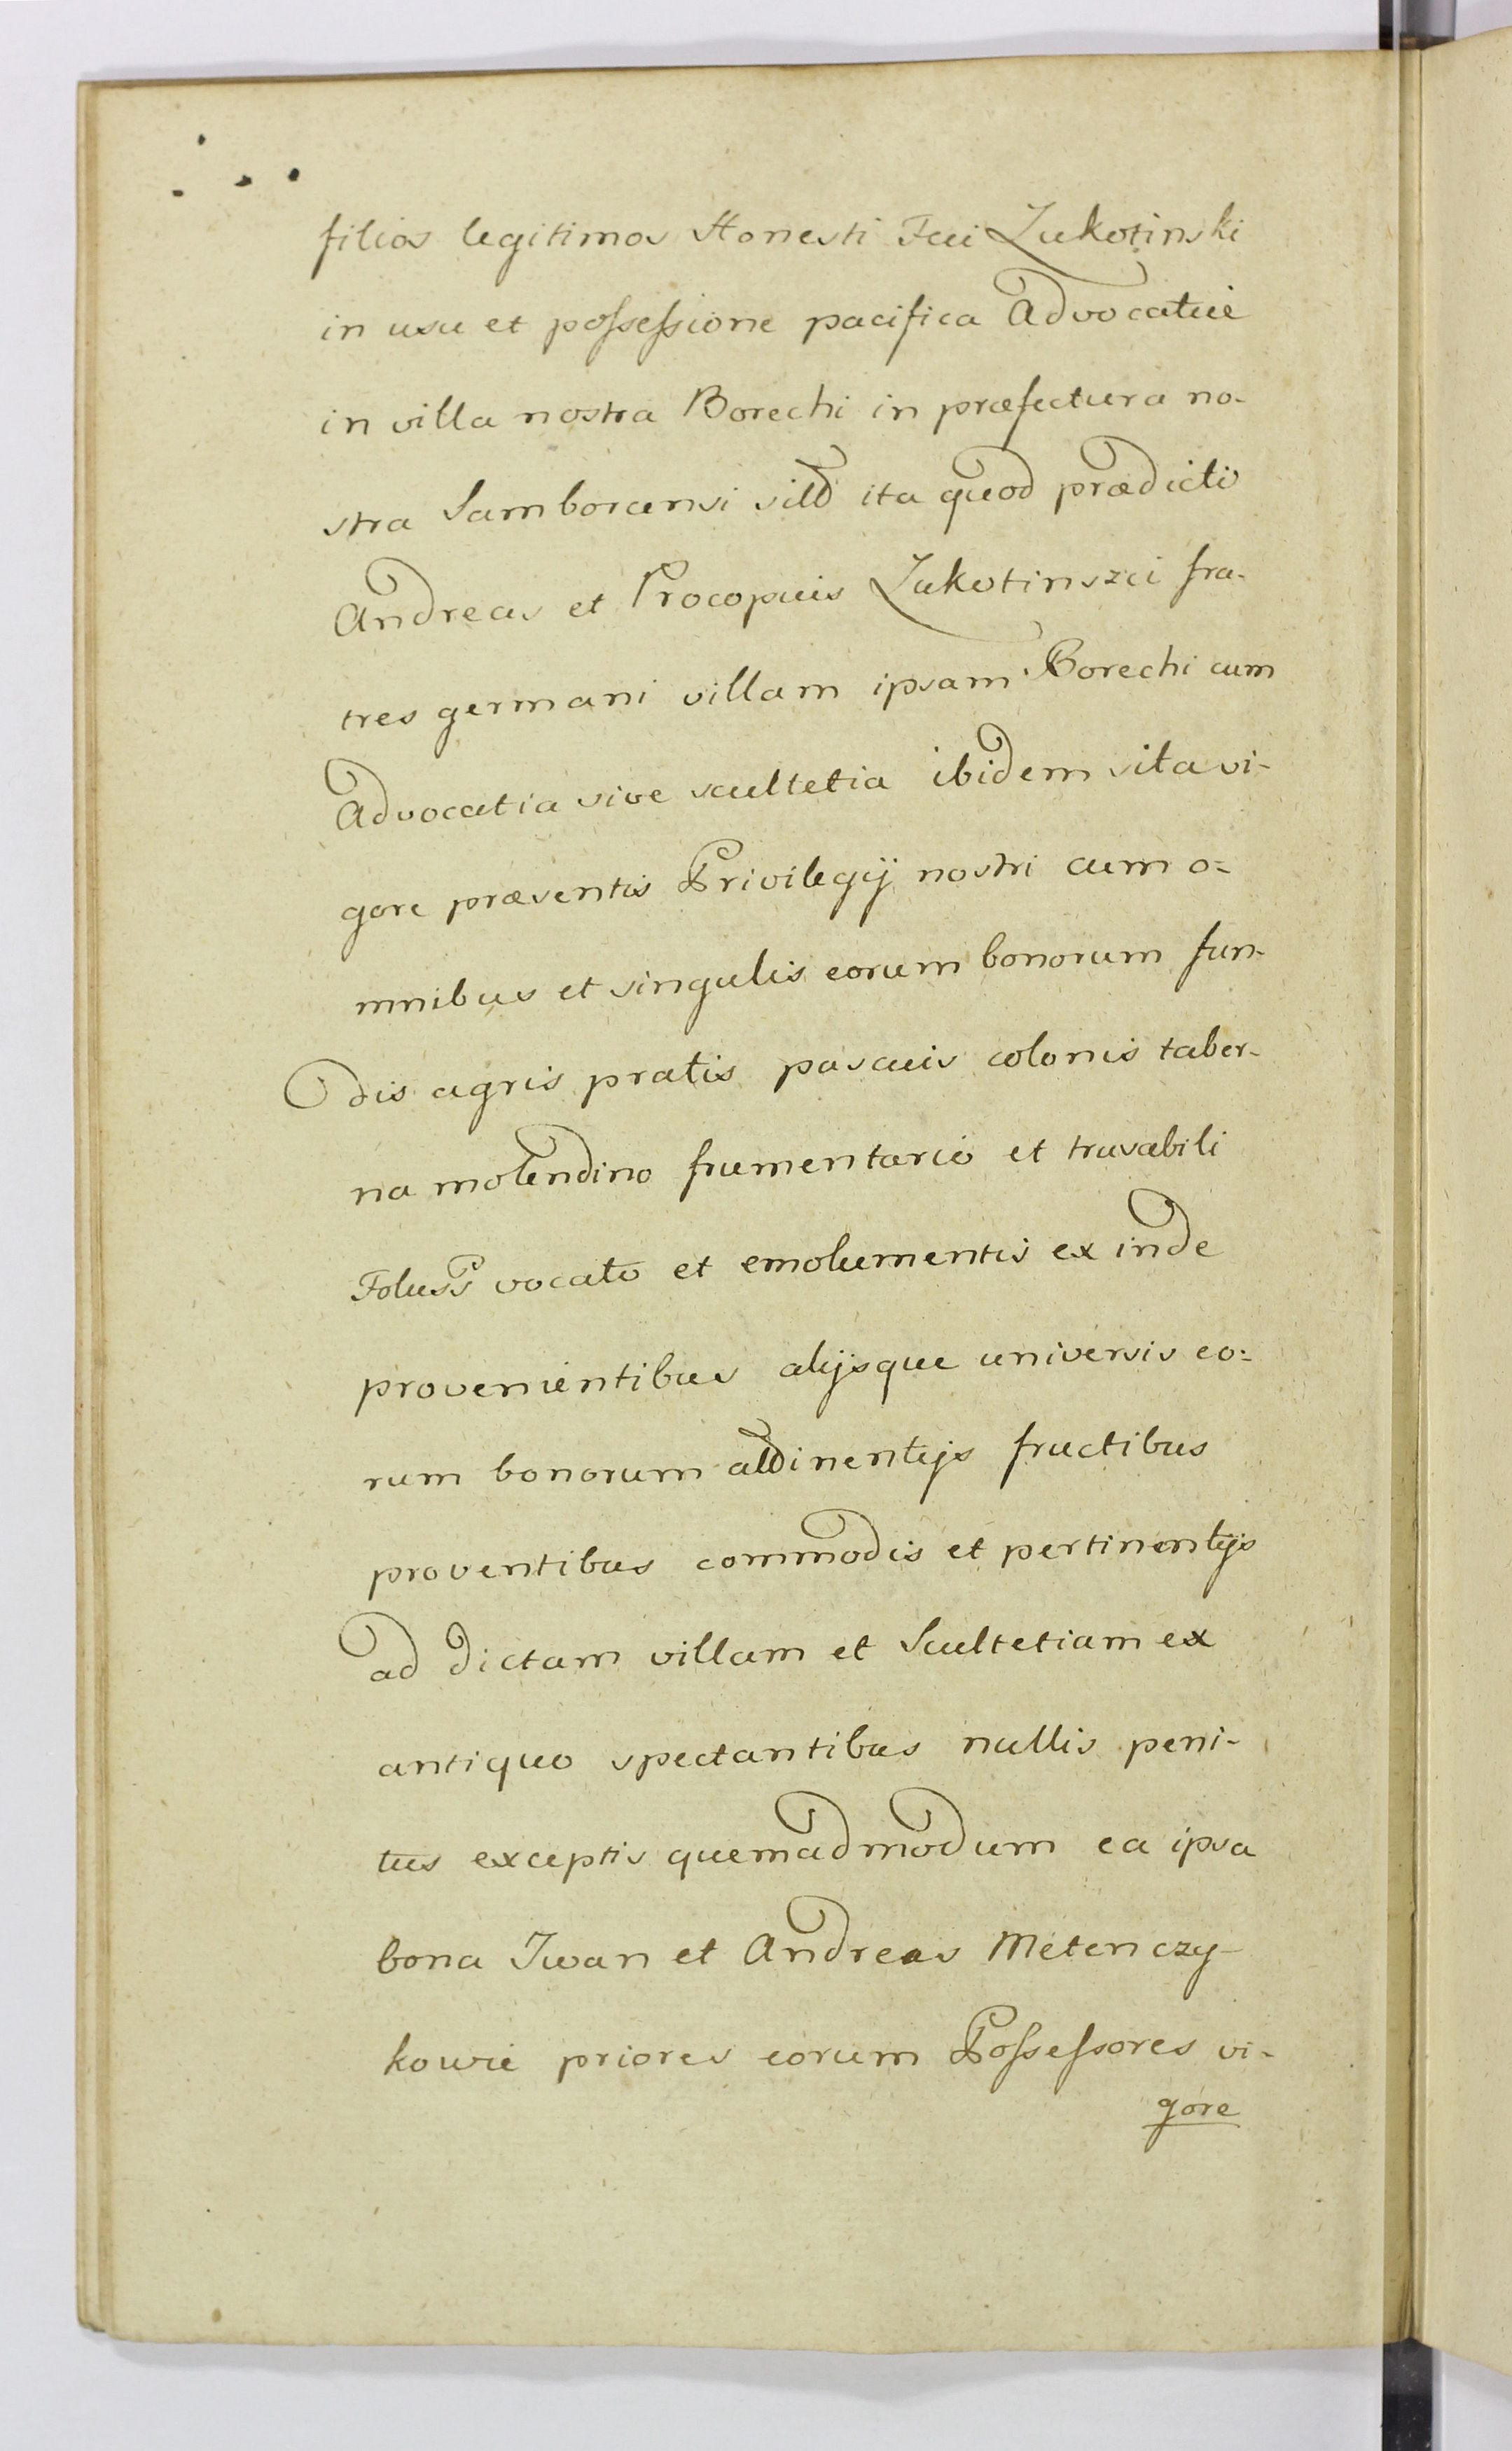 filios legitimos Honesti Fui Łukotinski
in usu et possessione pacifica Advocatiæ
in villa nostra Borechi in præfectura no-
stra Samborensi ita quod prædicti
Andreas et Procopius Łukotinszci fra-
tres germani villam ipsam Borechi cum
Advocatia sive scultetia ibidem sita vi-
gore præsentis Privilegij nostri cum o-
mnibus et singulis eorum bonorum fun-
dis agris pratis pascuis colonis taber-
na molendino frumentario et trusabili
Foluss vocato et emolumentis ex inde
provenientibus alijsque universis eo-
rum bonorum attinentijs fructibus
proventibus commodis et pertinentijs
ad dictam villam et Scultetiam ex
antiquo spectantibus nullis peni-
tus exceptis quemadmodum ea ipsa
bona Iwan et Andreas Metenczy-
kowie priores eorum Possessores vi-
gore